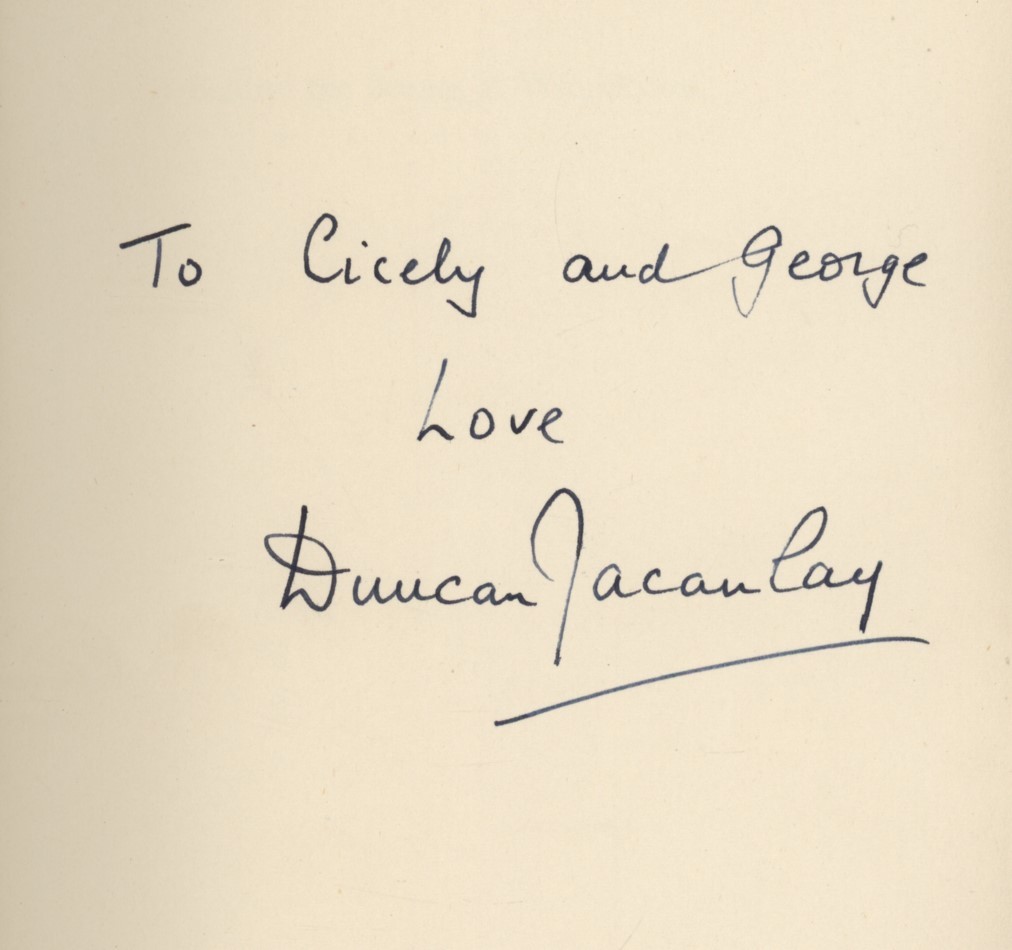 To Cicely and George
Love
Duncan Macaulay